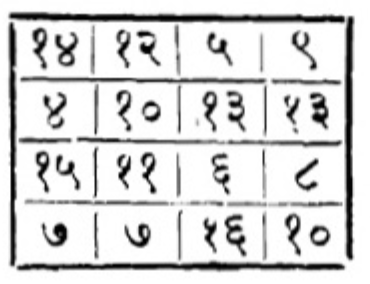 १४ १२ ५ ९
४ १० १३ १३
१५ ११ ६ ८
७ ७ १६ १०